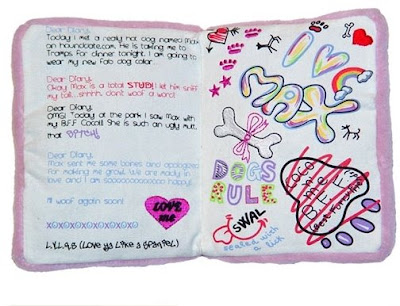 Dear Diary,
Today I met a really hot dog named Max
on hounddate.com. He is taking me to
Tramps for dinner tonight. I am going to
wear my new Fab dog collar.
Dear Diary,
Okay Max is a total STUD! I let him sniff
my tail...shhhh, don't woof a word!
Dear Diary,
OMG! Today at the park I saw Max with
my B.F.F Coco!!! She is such an ugly mutt,
that BITCH!
Dear Diary,
Max sent me some bones and apologized
for making me growl. We are madly in
love and I am soooooooooooo happy!
Ill woof again soon!
xoxoxoxoxoxoxoxo
L.Y.L.A.S (Love ya Like A Spaniel)
LOVE
me
I
MAX
DOGS
RULE
SWAL
sealed with a lick
COCO
me
B.F.F